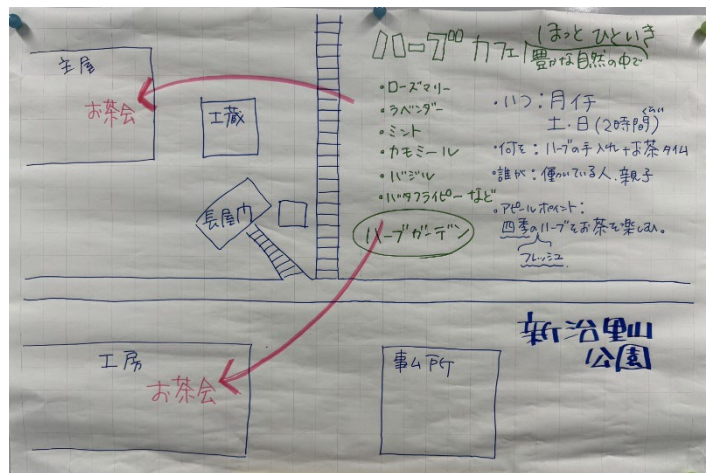 ハーブカフェ
ほっとひといき
豊かな自然の中で
・ローズマリー
・ラベンダー
・ミント
・カモミール
・バジル
・バタフライピーなど
ハーブガーデン
・いつ：月イチ
土・日(2時間)ぐらい
・何を：ハーブの手入れ+お茶タイム
・誰が：働いている人、親子
・アピールポイント：
四季のハーブをお茶を楽しみ。
フレッシュ
主屋
お茶会
土蔵
長屋門
工房
お茶会
事ム所
公園